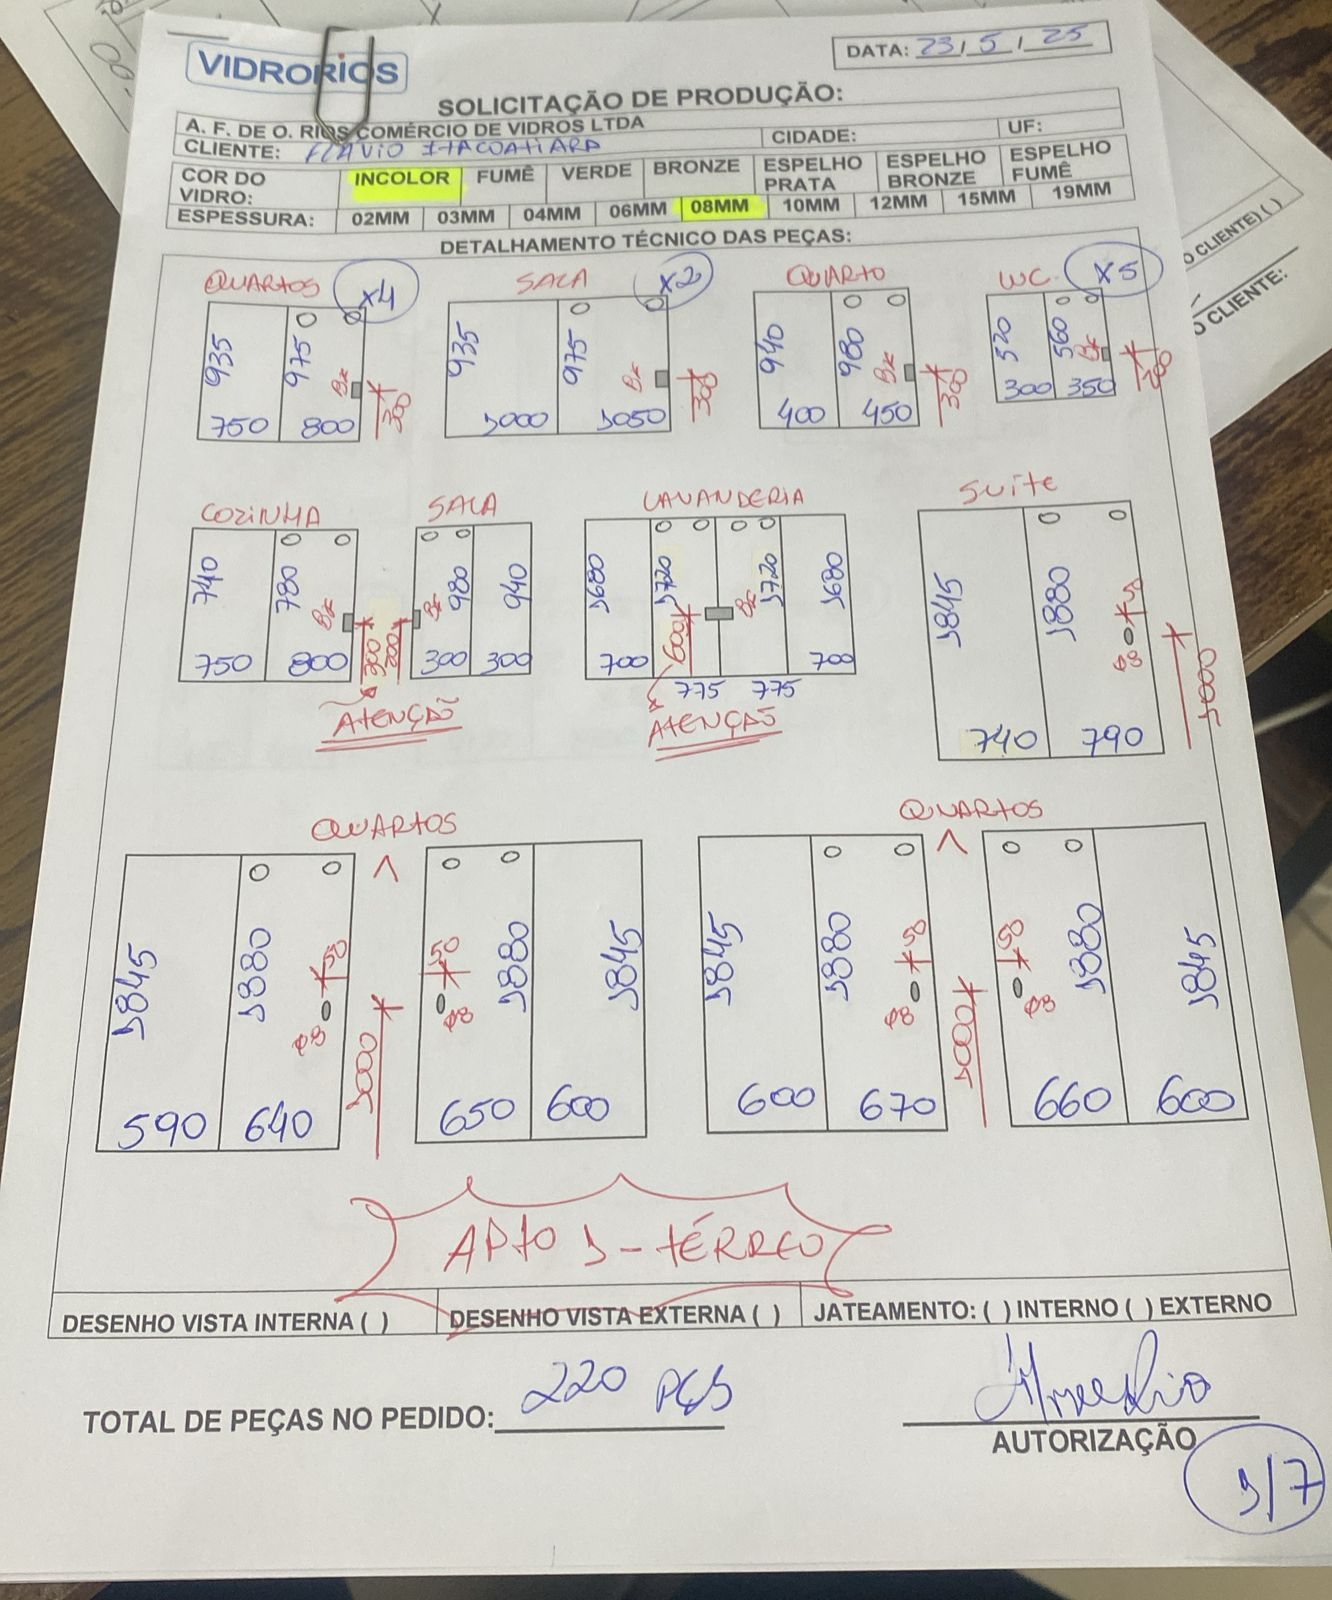 VIDRORIOS
DATA: 23/5/25
SOLICITAÇÃO DE PRODUÇÃO:
A. F. DE O. RIOS COMÉRCIO DE VIDROS LTDA
CLIENTE: FLÁVIO ITACOATIARA CIDADE: UF:
COR DO VIDRO: INCOLOR FUMÊ VERDE BRONZE ESPELHO PRATA ESPELHO BRONZE ESPELHO FUMÊ
ESPESSURA: 02MM 03MM 04MM 06MM 08MM 10MM 12MM 15MM 19MM
DETALHAMENTO TÉCNICO DAS PEÇAS:
QUARTOS X4 SALA X2 QUARTO WC. X5
935 975 Bx 300 935 975 Bx 300 940 980 Bx 300 520 560 Bx 200
750 800 1000 1050 400 450 300 350
COZINHA SALA LAVANDERIA SUITE
740 780 Bx 300 200 Bx 980 940 1680 1720 600 Bx 1720 1680 1845 1880 50 Ø8 1000
750 800 300 300 700 775 775 700 740 790
ATENÇÃO ATENÇÃO
QUARTOS QUARTOS
1845 1880 50 Ø8 1000 50 Ø8 1880 1845 1845 1880 50 Ø8 1000 50 Ø8 1880 1845
590 640 650 600 600 670 660 600
APTO 1 - TÉRREO
DESENHO VISTA INTERNA ( ) DESENHO VISTA EXTERNA ( ) JATEAMENTO: ( ) INTERNO ( ) EXTERNO
TOTAL DE PEÇAS NO PEDIDO: 220 PÇS
AUTORIZAÇÃO
1/7
O CLIENTE) ( )
O CLIENTE: